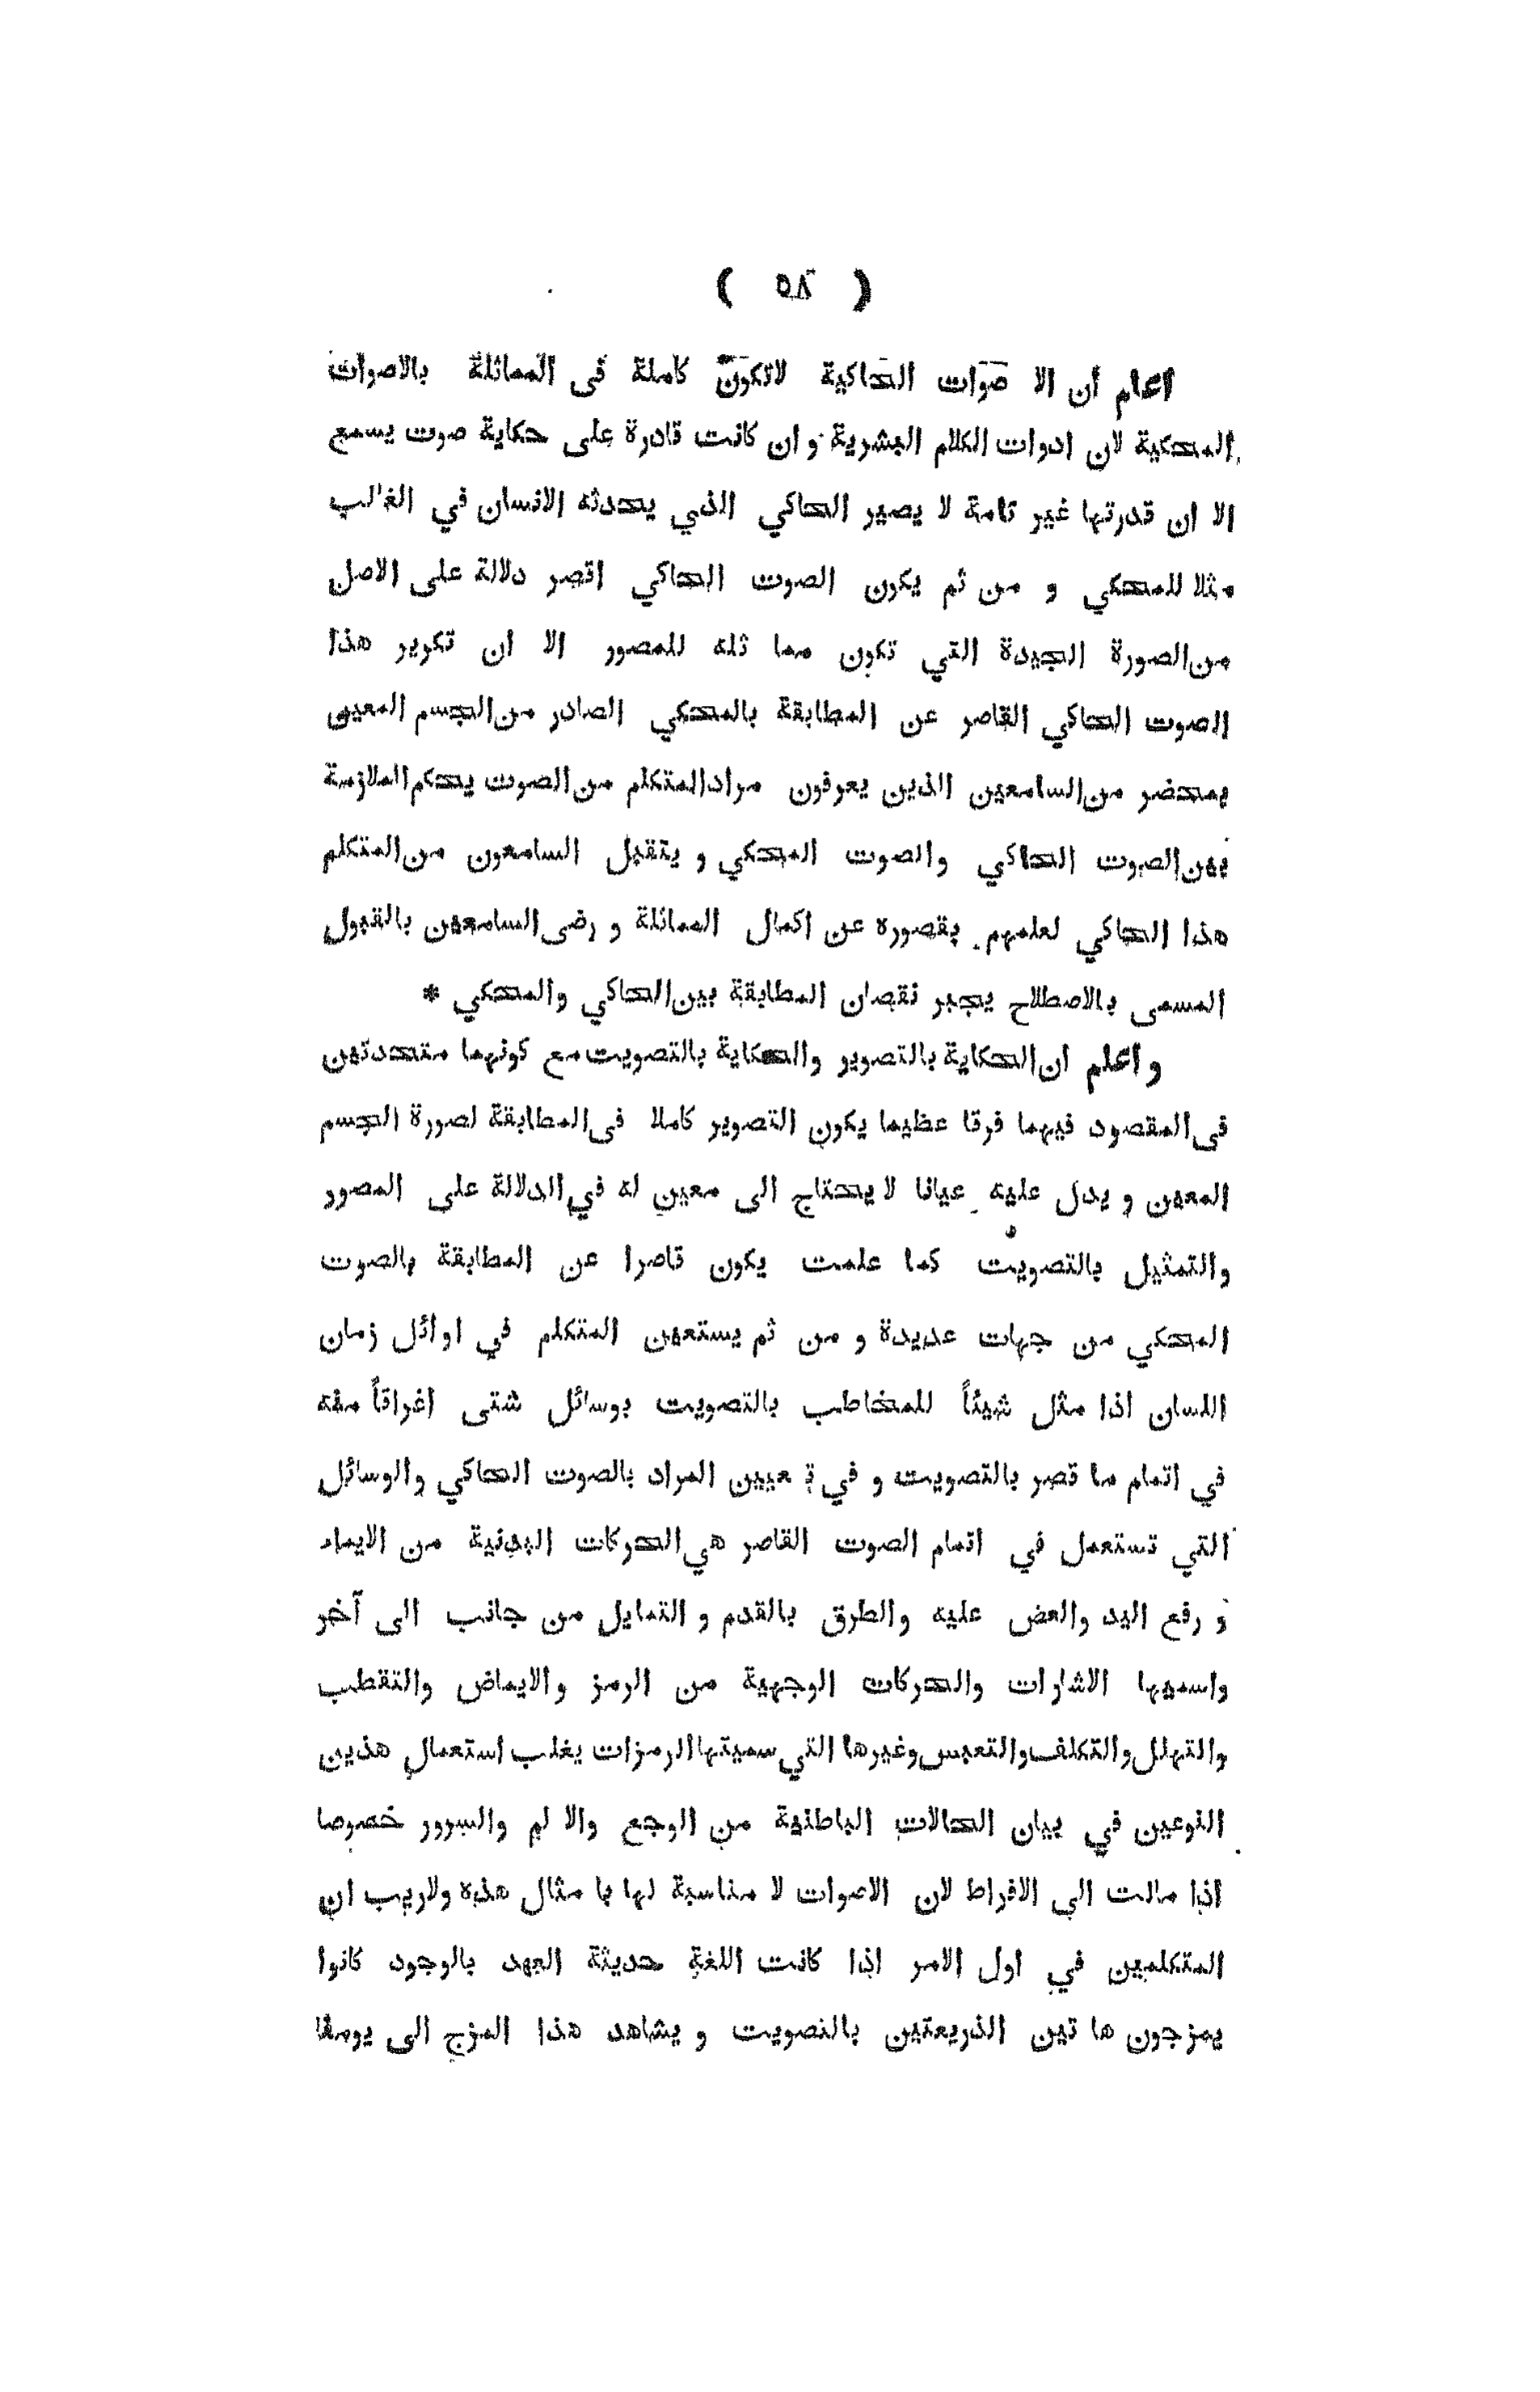 ( ٥٨ )
اعلم ان الا صوات الحاكية لاتكون كاملة فى المماثلة بالاصوات
المحكية لان ادوات الكلام البشرية و ان كانت قادرة على حكاية صوت يسمع
الا ان قدرتها غير تامة لا يصير الحاكي الذي يحدثه الانسان في الغالب
مثلا للمحكي و من ثم يكون الصوت الحاكي اقصر دلالة على الاصل
من الصورة الجيدة التي تكون مما ثله للمصور الا ان تكرير هذا
الصوت الحاكي القاصر عن المطابقة بالمحكي الصادر من الجسم المعين
بمحضر من السامعين الذين يعرفون مراد المتكلم من الصوت يحكم الملازمة
بين الصوت الحاكي والصوت المحكي و يتقبل السامعون من المتكلم
هذا الحاكي لعلمهم بقصوره عن اكمال المماثلة و رضى السامعين بالقبول
المسمى بالاصطلاح يجبر نقصان المطابقة بين الحاكي والمحكي *
و اعلم ان الحكاية بالتصوير والحكاية بالتصويت مع كونهما متحدتين
فى المقصود فيهما فرقا عظيما يكون التصوير كاملا فى المطابقة لصورة الجسم
المعين و يدل عليه عيانا لا يحتاج الى معين له في الدلالة على المصور
والتمثيل بالتصويت كما علمت يكون قاصرا عن المطابقة بالصوت
المحكي من جهات عديدة و من ثم يستعين المتكلم في اوائل زمان
اللسان اذا مثل شيئاً للمخاطب بالتصويت بوسائل شتى اغراقاً منه
في اتمام ما قصر بالتصويت و في ت عيين المراد بالصوت الحاكي والوسائل
التي تستعمل في اتمام الصوت القاصر هي الحركات البدنية من الايماء
و رفع اليد والعض عليه والطرق بالقدم و التمايل من جانب الى آخر
واسميها الاشارات والحركات الوجهية من الرمز والايماض والتقطب
والتهلل والتكلف والتعبس وغيرها التي سميتها الرمزات يغلب استعمال هذين
النوعين في بيان الحالات الباطنية من الوجع والا لم والسرور خصوصا
اذا مالت الى الافراط لان الاصوات لا مناسبة لها با مثال هذه ولاريب ان
المتكلمين في اول الامر اذا كانت اللغة حديثة العهد بالوجود كانوا
يمزجون ها تين الذريعتين بالتصويت و يشاهد هذا المزج الى يومنا